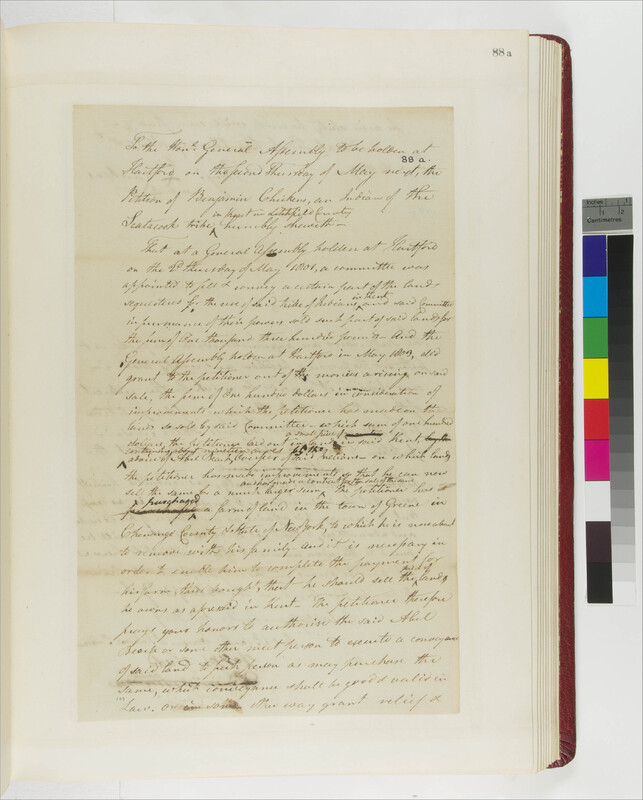 88a
To the Honble General Assembly to be holden at
88 a.
Hartford on the second Thursday of May next, the
Petition of Benjamin Chickens, an Indian of the
in Kent in Litchfield County
Scatacook tribe, humbly sheweth—
That at a General Assembly holden at Hartford
on the 2d Thursday of May 1801, a committee was
appointed to sell & convey a certain part of the lands
sequestered for the use of said tribe of Indians, in Kent and said Committee
in pursuance of their powers sold such part of said lands for
the sum of One thousand three hundred pounds— And the
General Assembly holden at Hartford in May 1803, did
grant to the petitioner out of the monies arising on said
sale, the sum of One hundred dollars in consideration of
improvements which the petitioner had made on the
lands so sold by said Committee— which sum of one hundred
a small piece of
dollars, the petitioner laid out in land in said Kent,
containing about nineteen acres
on which land
the petitioner has made improvements, so that he can now
and has made a contract for the sale of the same
sell the same for a much larger sum, The petitioner has
purchased
a farm of land in the town of Greene in
Chenango County & State of New York, to which he is now about
to remove with his family and it is necessary in
order to enable him to complete the payment for
his farm, there bought, that he should sell the piece of land
he owns as aforesaid in Kent— The petitioner therefore
prays your honors to authorise the said Abel
Beach or some other meet person to execute a conveyance
of said land to such person as may purchase the
same, which conveyance shall be good & valid in
Law. or in some other way grant relief &